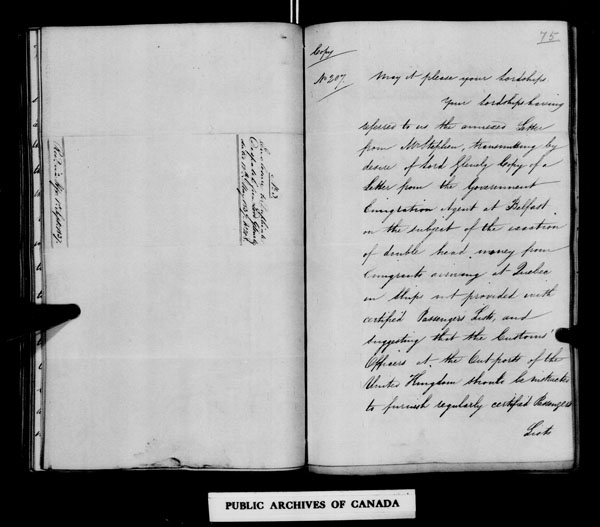 75
Copy
No 207.
May it please your Lordships.
Your Lordships having
referred to us the annexed Letter
from Mr Stephen, transmitting by
desire of Lord Glenelg Copy of a
Letter from the Government
Emigration Agent at Belfast
on the subject of the exaction
of double head money from
Emigrants arriving at Quebec
in Ships not provided with
certified Passengers Lists, and
suggesting that the Customs'
Officers at the Out-ports of the
United Kingdom should be instructed
to furnish regularly certified Passengers
Lists
No 3
PUBLIC ARCHIVES OF CANADA